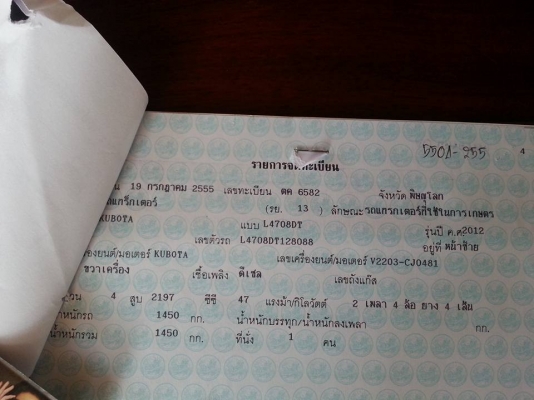 5501-255 4
รายการจดทะเบียน
19 กรกฎาคม 2555 เลขทะเบียน ตค 6582 จังหวัด พิษณุโลก
(รย. 13 ) ลักษณะ รถแทรกเตอร์ที่ใช้ในการเกษตร
KUBOTA แบบ L4708DT รุ่นปี ค.ศ 2012
เลขตัวรถ L4708DT128088 อยู่ที่ หน้าซ้าย
เครื่องยนต์/มอเตอร์ KUBOTA เลขเครื่องยนต์/มอเตอร์ V2203-CJ0481
ขวาเครื่อง เชื้อเพลิง ดีเซล เลขถังแก๊ส
4 สูบ 2197 ซีซี 47 แรงม้า/กิโลวัตต์ 2 เพลา 4 ล้อ ยาง 4 เส้น
น้ำหนักรถ 1450 กก. น้ำหนักบรรทุก/น้ำหนักลงเพลา กก.
น้ำหนักรวม 1450 กก. ที่นั่ง 1 คน